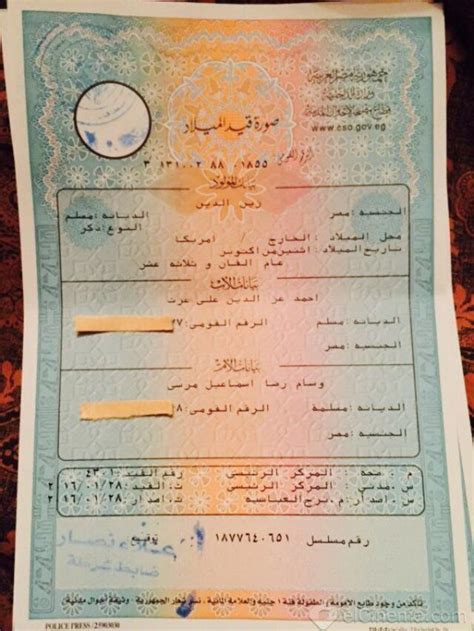 جمهورية مصر العربية
وزارة الداخلية
قطاع مصلحة الأحوال المدنية
www.cso.gov.eg
صورة قيد الميلاد
الرقم القومى
٣ ١٣١٠٠٢ ٨٨ ٠١٨٥٥
بيانات المولود
زين الدين
الجنسيه: مصر الديانه: مسلم
النوع: ذكر
محل الميلاد: الخارج / أمريكا
تاريخ الميلاد: اثنين من أكتوبر
عام ألفان و ثلاثه عشر
بيانات الأب
احمد عز الدين على عزت
الديانه: مسلم الرقم القومى: ٢٧
الجنسيه: مصر
بيانات الأم
وسام رضا اسماعيل مرسى
الديانه: مسلمة الرقم القومى: ٢٨
الجنسيه: مصر
م . صحه: المركز الرئيسى رقم القيد: ٤٣٠١
س . مدنى: المركز الرئيسى ت. القيد: ٢٠١٦/٠١/٢٨
س. اصدار: م. برج العباسيه ت. اصدار: ٢٠١٦/٠١/٢٨
رقم مسلسل ١٨٧٧٦٤٠٦٥١ توقيع
تأكد من وجود طابع الأمومة و الطفولة فئة ١ جنيه والعلامة المائية: نسر شعار الجمهورية - وثيقة أحوال مدنية
POLICE PRESS /
elCinema.com